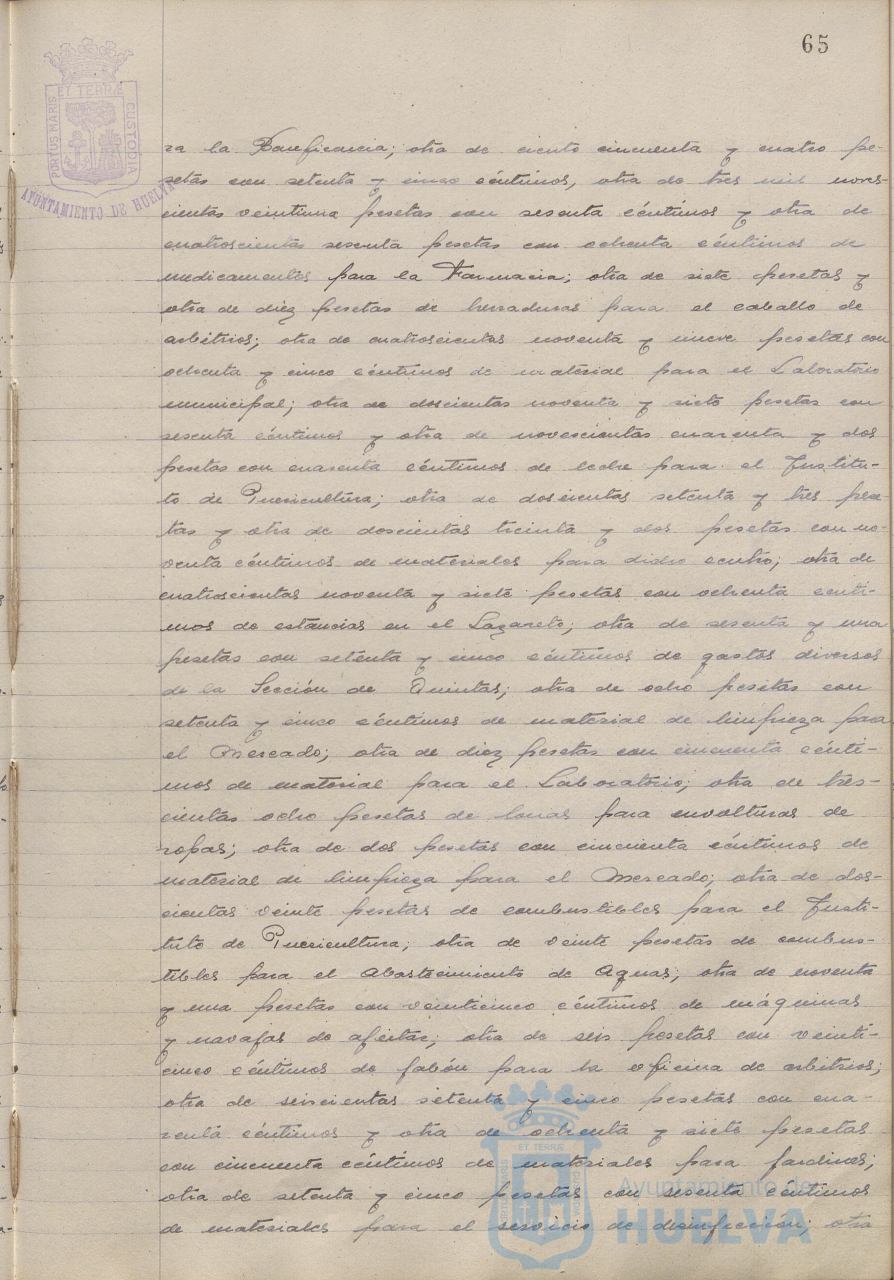 65
ET TERRÆ
PORTUS MARIS
CUSTODIA
AYUNTAMIENTO DE HUELVA
ra la Beneficencia; otra de ciento cincuenta y cuatro pe-
setas con setenta y cinco céntimos, otra de tres mil noves-
cientas veintiuna pesetas con sesenta céntimos y otra de
cuatroscientas sesenta pesetas con ochenta céntimos de
medicamentos para la Farmacia; otra de siete pesetas y
otra de diez pesetas de herraduras para el caballo de
arbitrios; otra de cuatroscientas noventa y nueve pesetas con
ochenta y cinco céntimos de material para el Laboratorio
municipal; otra de doscientas noventa y siete pesetas con
sesenta céntimos y otra de novescientas cuarenta y dos
pesetas con cuarenta céntimos de leche para el Institu-
to de Puericultura; otra de doscientas setenta y tres pese
tas y otra de doscientas treinta y dos pesetas con no-
venta céntimos de materiales para dicho centro; otra de
cuatroscientas noventa y siete pesetas con ochenta cénti-
mos de estancias en el Lazareto; otra de sesenta y una
pesetas con setenta y cinco céntimos de gastos diversos
de la Sección de Quintas; otra de ocho pesetas con
setenta y cinco céntimos de material de limpieza para
el Mercado; otra de diez pesetas con cincuenta cénti-
mos de material para el Laboratorio; otra de tres-
cientas ocho pesetas de lonas para envolturas de
ropas; otra de dos pesetas con cincuenta céntimos de
material de limpieza para el Mercado; otra de dos-
cientas veinte pesetas de combustibles para el Insti-
tuto de Puericultura; otra de veinte pesetas de combus-
tibles para el Abastecimiento de Aguas; otra de noventa
y una pesetas con veinticinco céntimos de máquinas
y navajas de afeitar; otra de seis pesetas con veinti-
cinco céntimos de jabón para la oficina de arbitrios;
otra de seiscientas setenta y cinco pesetas con cua-
renta céntimos y otra de ochenta y siete pesetas
con cincuenta céntimos de materiales para jardines;
otra de setenta y cinco pesetas con sesenta céntimos
de materiales para el servicio de desinfección; otra
ET TERRÆ
Ayuntamiento de
HUELVA